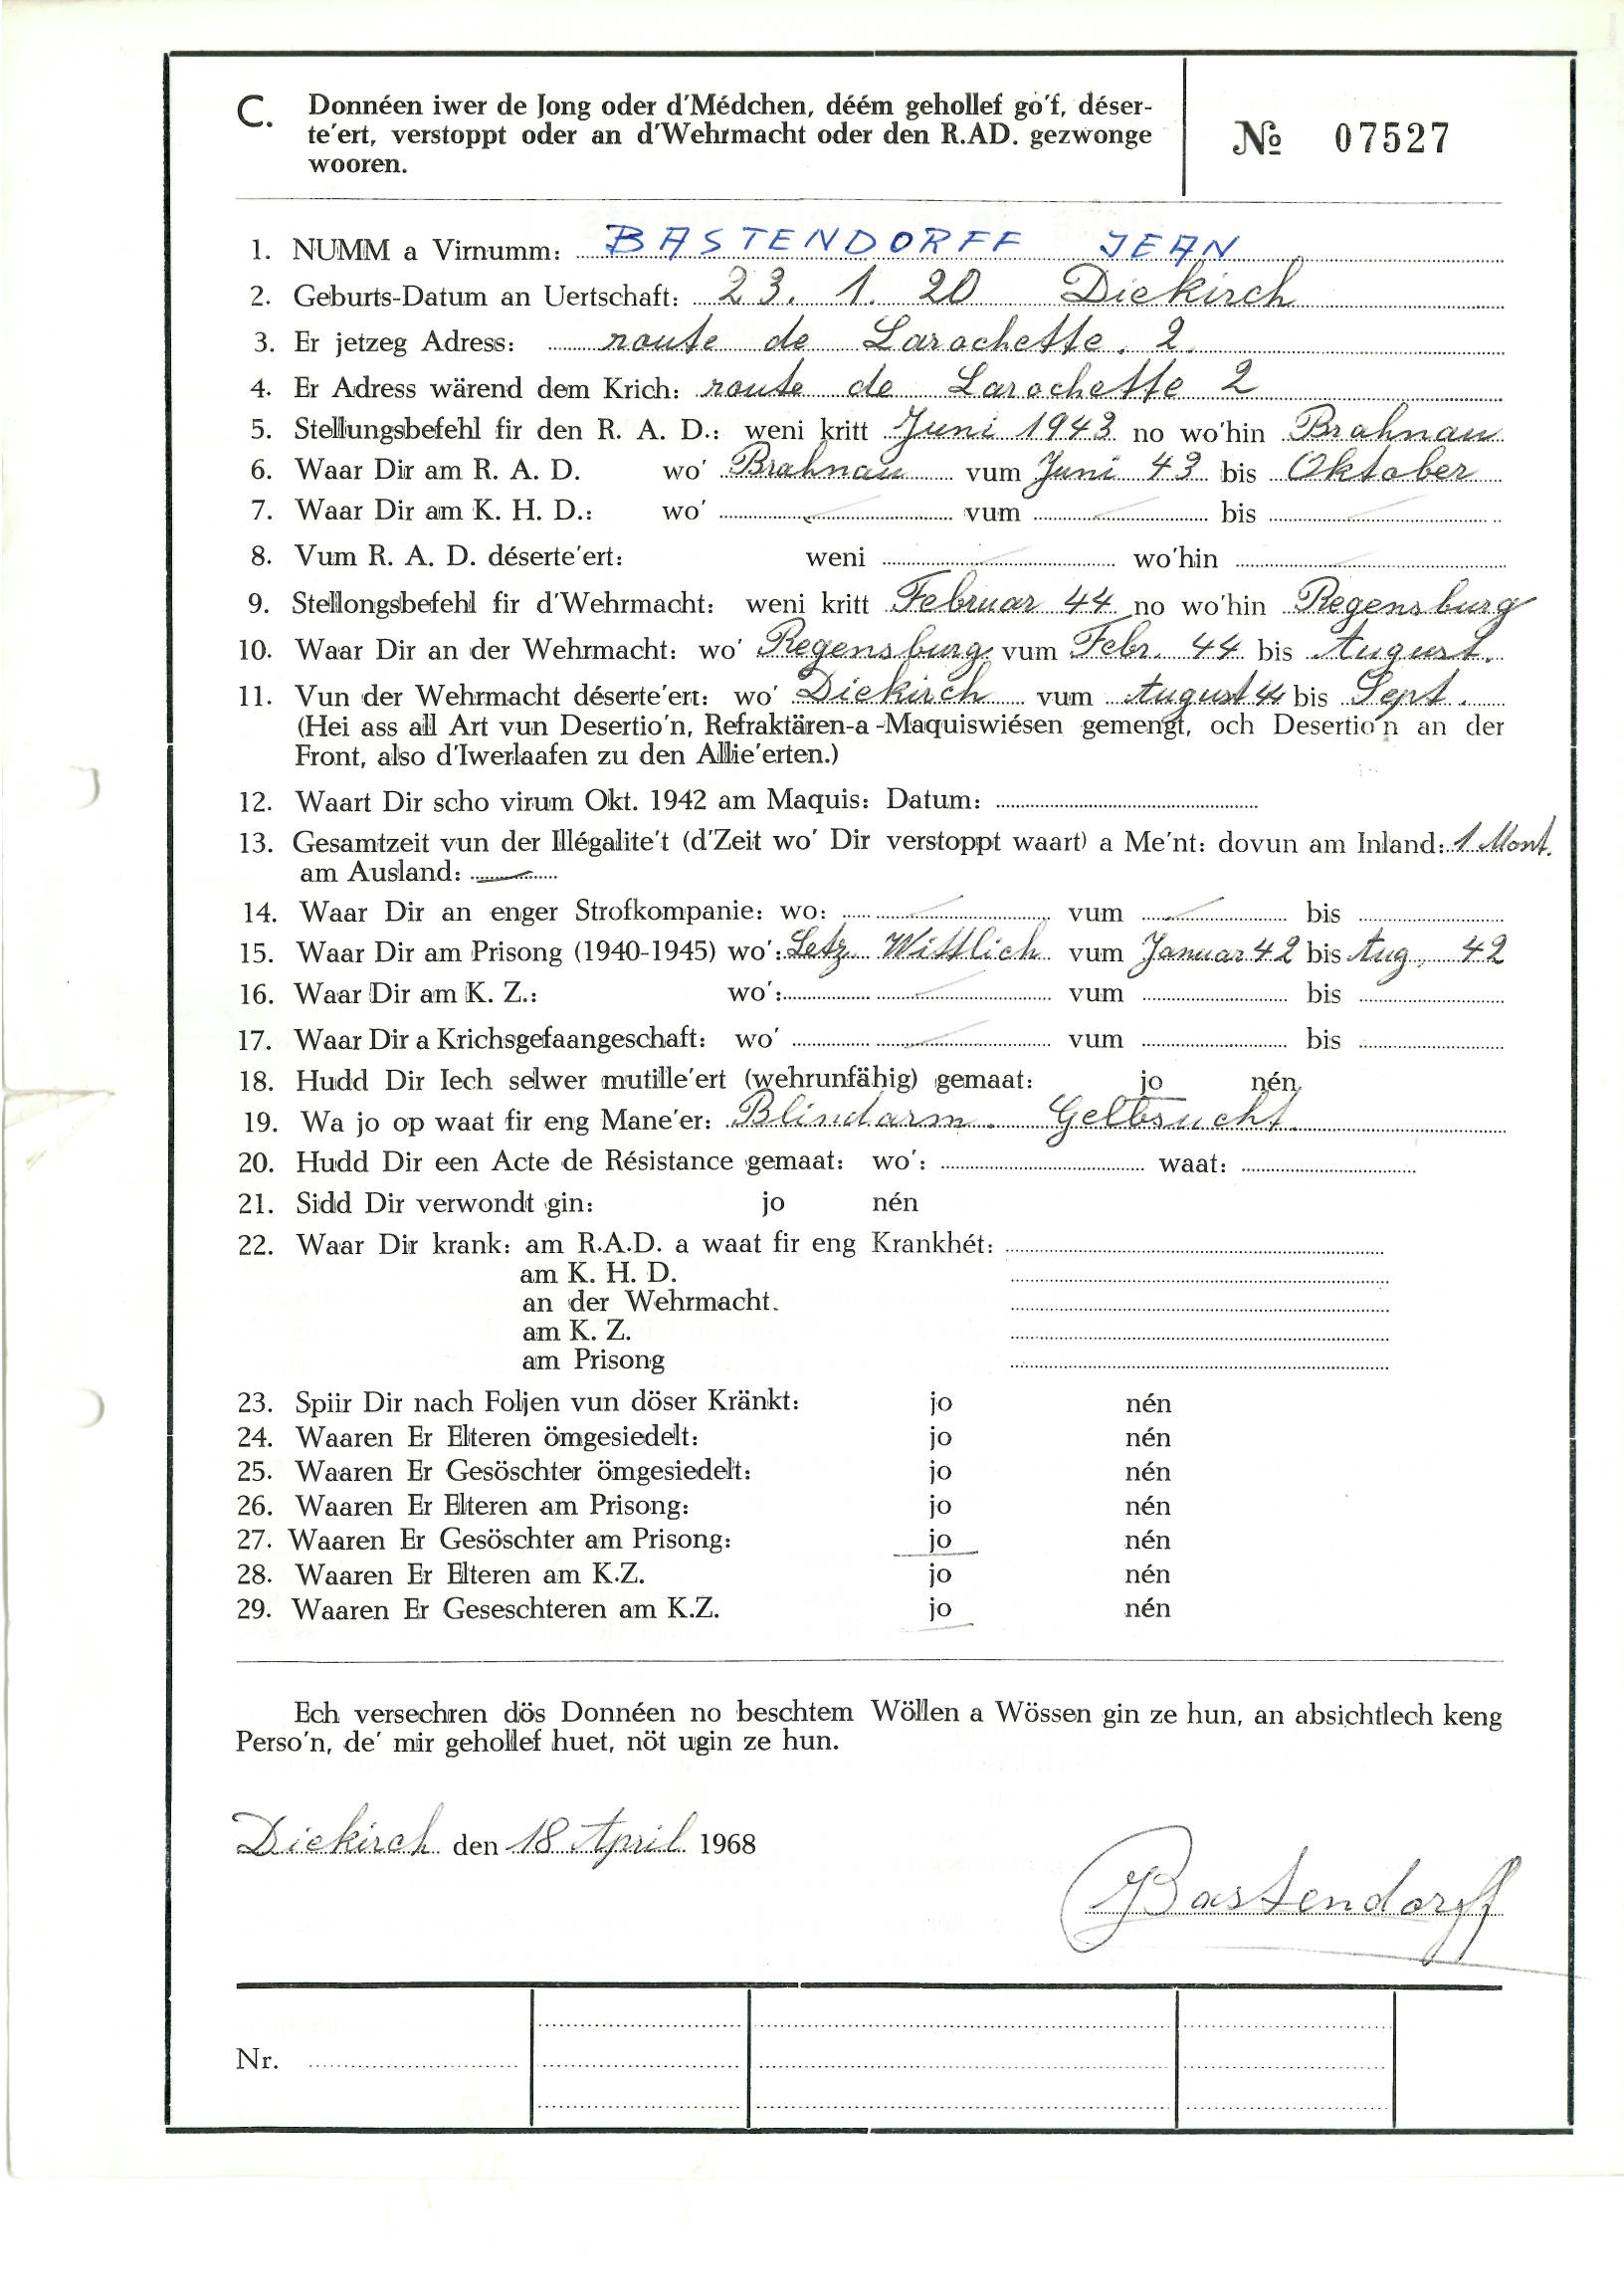 C. Donnéen iwer de Jong oder d'Médchen, déém gehollef go'f, déser-
te'ert, verstoppt oder an d'Wehrmacht oder den R.AD. gezwonge
wooren.
№ 07527
1. NUMM a Virnumm: BASTENDORFF JEAN
2. Geburts-Datum an Uertschaft: 23. 1. 20 Diekirch
3. Er jetzeg Adress: route de Larochette. 2.
4. Er Adress wärend dem Krich: route de Larochette 2
5. Stellungsbefehl fir den R. A. D.: weni kritt Juni 1943 no wo'hin Brahnau
6. Waar Dir am R. A. D. wo' Brahnau vum Juni 43 bis Oktober
7. Waar Dir am K. H. D.: wo' vum bis
8. Vum R. A. D. déserte'ert: weni wo'hin
9. Stellongsbefehl fir d'Wehrmacht: weni kritt Februar 44 no wo'hin Regensburg
10. Waar Dir an der Wehrmacht: wo' Regensburg vum Febr. 44 bis August.
11. Vun der Wehrmacht déserte'ert: wo' Diekirch vum August 44 bis Sept.
(Hei ass all Art vun Desertio'n, Refraktären-a -Maquiswiésen gemengt, och Desertio'n an der
Front, also d'Iwerlaafen zu den Allie'erten.)
12. Waart Dir scho virum Okt. 1942 am Maquis: Datum:
13. Gesamtzeit vun der Illégalite't (d'Zeit wo' Dir verstoppt waart) a Me'nt: dovun am Inland: 1 Mont.
am Ausland:
14. Waar Dir an enger Strofkompanie: wo: vum bis
15. Waar Dir am Prisong (1940-1945) wo': Letz. Wittlich vum Januar 42 bis Aug. 42
16. Waar Dir am K. Z.: wo': vum bis
17. Waar Dir a Krichsgefaangeschaft: wo' vum bis
18. Hudd Dir Iech selwer mutille'ert (wehrunfähig) gemaat: jo nén
19. Wa jo op waat fir eng Mane'er: Blindarm. Gelbsucht.
20. Hudd Dir een Acte de Résistance gemaat: wo': waat:
21. Sidd Dir verwondt gin: jo nén
22. Waar Dir krank: am R.A.D. a waat fir eng Krankhét:
am K. H. D.
an der Wehrmacht.
am K. Z.
am Prisong
23. Spiir Dir nach Foljen vun döser Kränkt: jo nén
24. Waaren Er Elteren ömgesiedelt: jo nén
25. Waaren Er Gesöschter ömgesiedelt: jo nén
26. Waaren Er Elteren am Prisong: jo nén
27. Waaren Er Gesöschter am Prisong: jo nén
28. Waaren Er Elteren am K.Z. jo nén
29. Waaren Er Geseschteren am K.Z. jo nén
Ech versechren dös Donnéen no beschtem Wöllen a Wössen gin ze hun, an absichtlech keng
Perso'n, de' mir gehollef huet, nöt ugin ze hun.
Diekirch den 18 April 1968
Bastendorff
Nr.